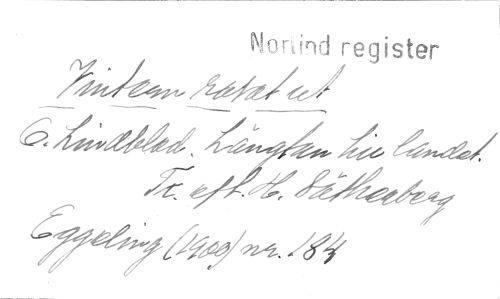 Norlind register
Vintern rasat ut
O. Lindblad. Längtan till landet.
Tr. eft. H. Sätherberg
Eggeling (1900) nr. 184